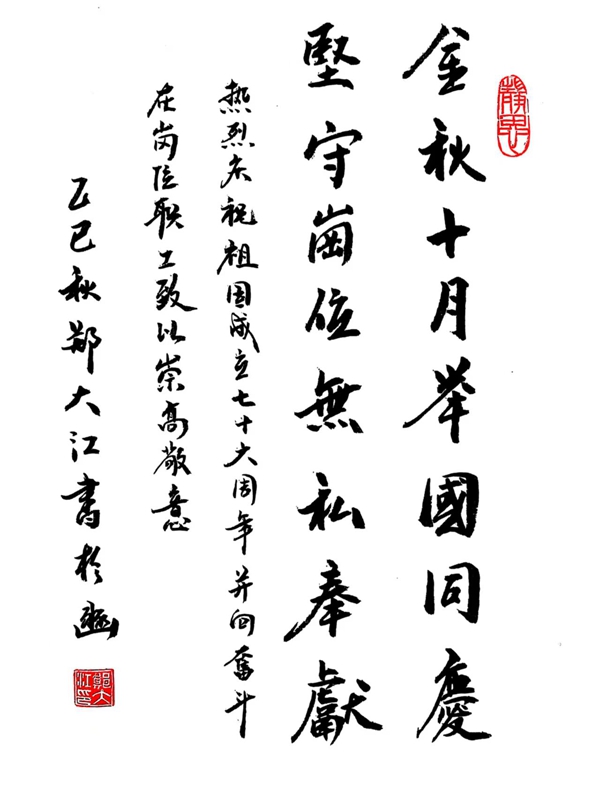 金秋十月举國同慶
堅守崗位無私奉獻
热烈庆祝祖国成立七十六周年并向奮斗
在岗位职工致以崇高敬意
乙巳秋郑大江書於
鄭大江印